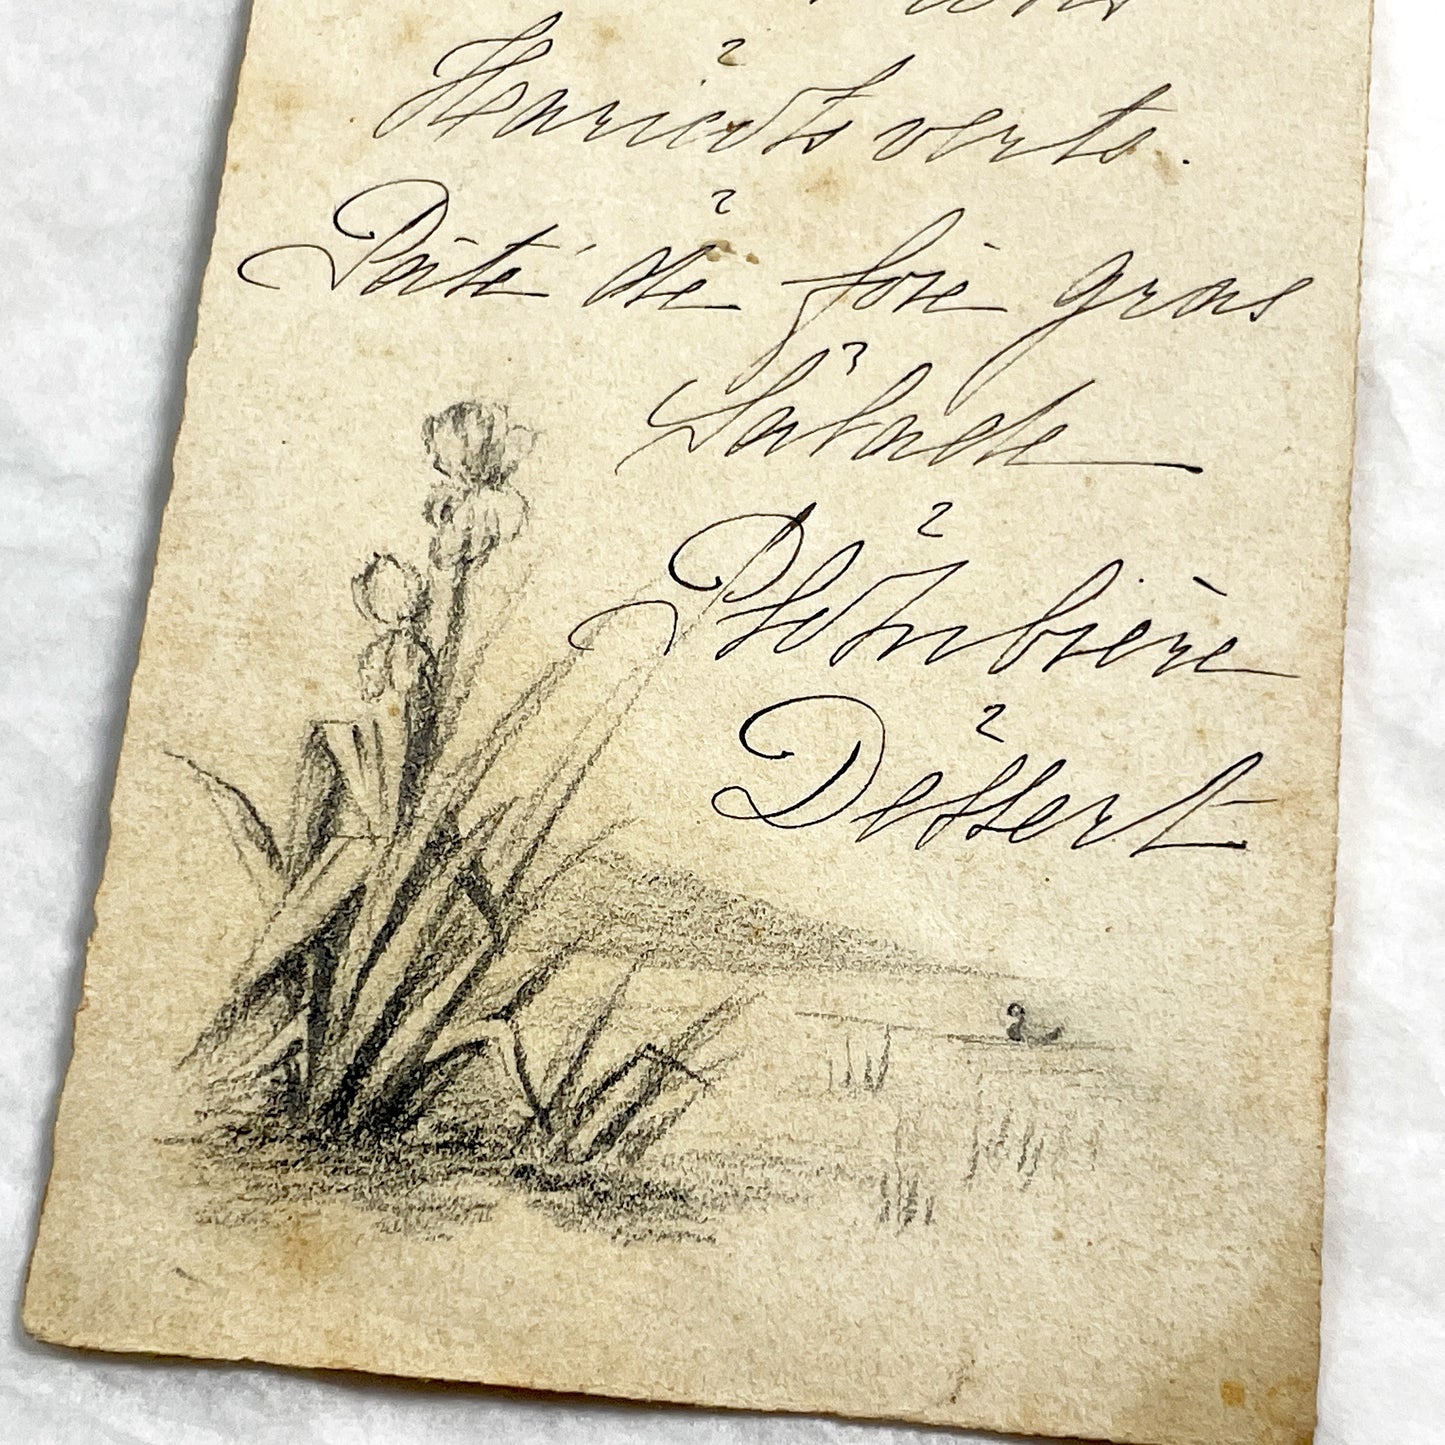 Haricots verts.
Pâté de foie gras
Salade
Plombière
Dessert